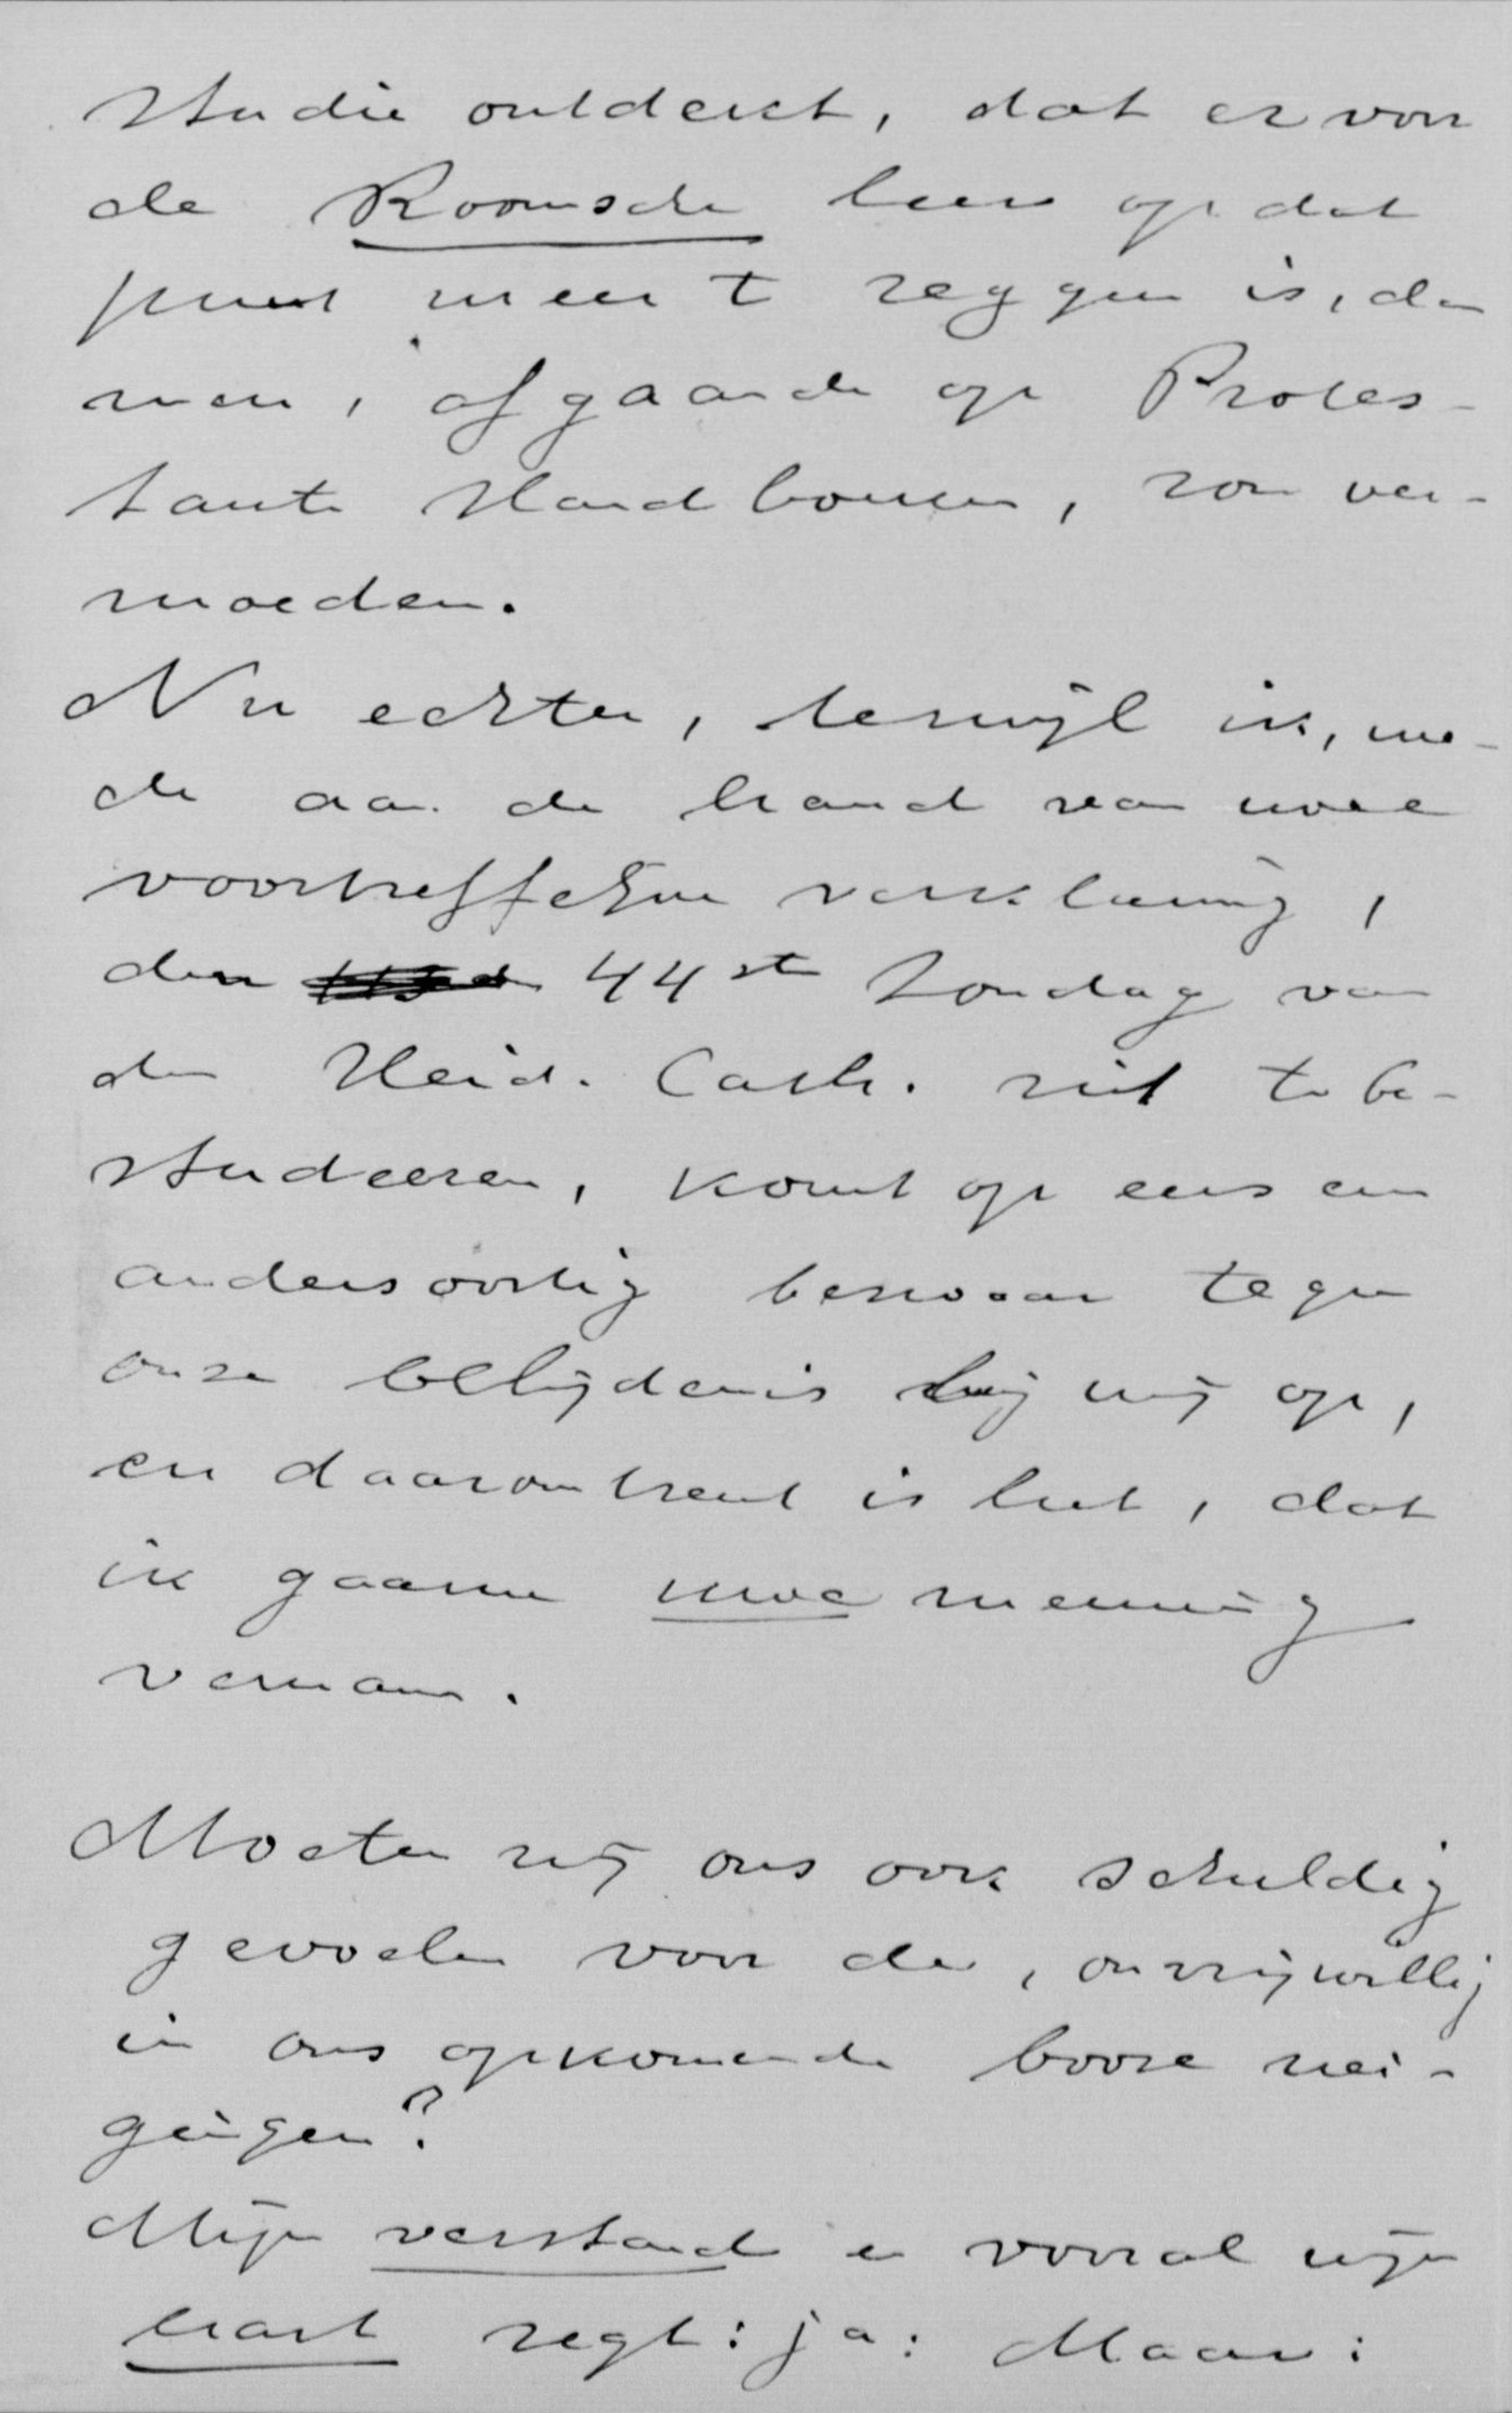 studie ontdekt, dat er voor
de Roomsche leer op dat
punt meer te zeggen is, dan
men, afgaande op Protes-
tante Handboeken, zou ver-
moeden.
Nu echter, terwijl ik, me-
de aan de hand van uwe
voortreffelijke verklaring,
den 44ste Zondag van
den Heid. Cath. zit te be-
studeeren, komt op eens een
andersoortig bezwaar tegen
onze belijdenis bij mij op,
en daaromtrent is het, dat
ik gaarne uwe meening
vernam.
Moeten wij ons ook schuldig
gevoelen voor de, onvrijwillig
in ons opkomende booze nei-
gingen?
Mijn verstand en vooral mijn
hart zegt: ja: Maar: